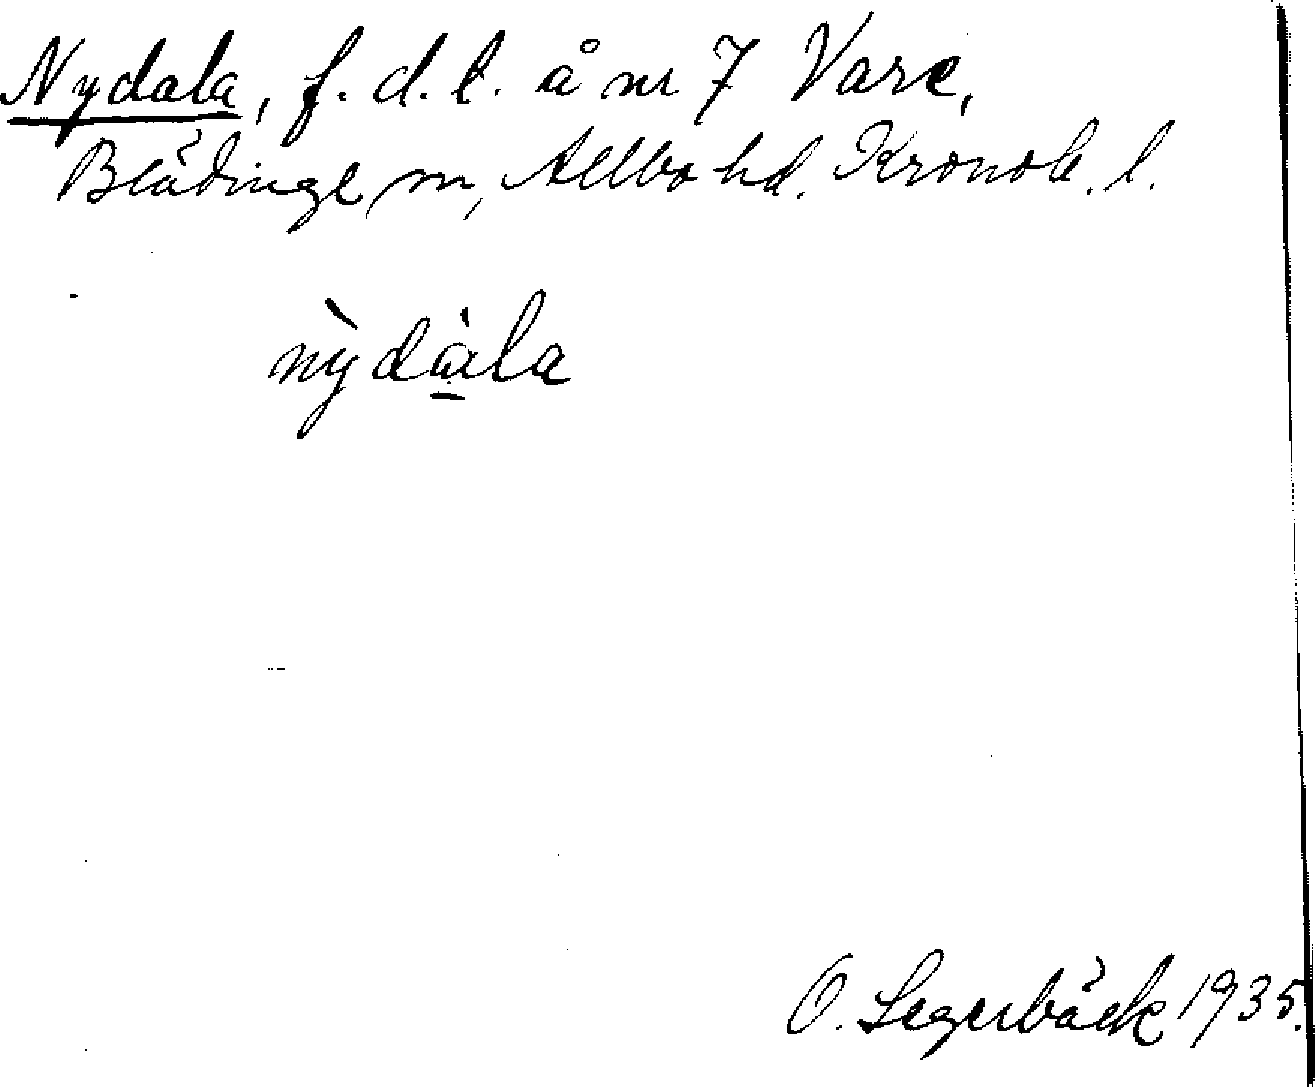 Nydala, f. d. l. å nr 7 Vare,
Blädinge sn, Allbo hd. Kronob. l.
nỳdà̱la
O. Segerbäck 1935.